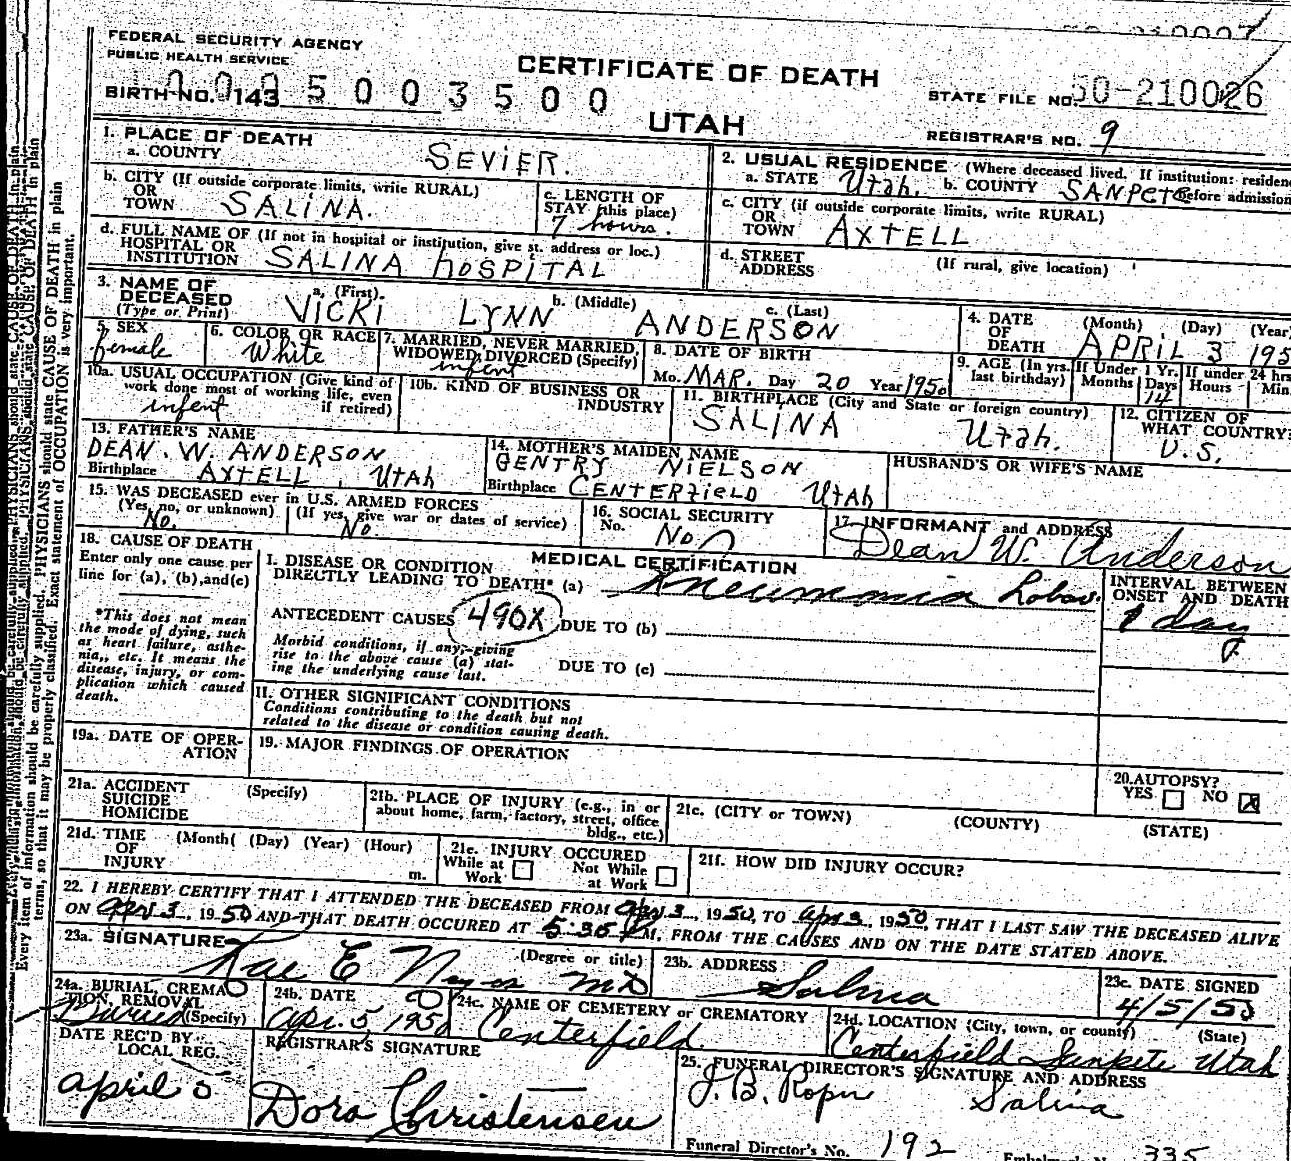 FEDERAL SECURITY AGENCY
PUBLIC HEALTH SERVICE
CERTIFICATE OF DEATH
UTAH
BIRTH NO. 143
0005003500
STATE FILE NO. 50-210026
REGISTRAR'S NO. 9
1. PLACE OF DEATH
a. COUNTY SEVIER.
2. USUAL RESIDENCE (Where deceased lived. If institution: residence before admission
a. STATE Utah. b. COUNTY SANPETE
b. CITY (If outside corporate limits, write RURAL) OR TOWN SALINA.
c. LENGTH OF STAY (this place) 7 hours.
c. CITY (if outside corporate limits, write RURAL) OR TOWN AXTELL
d. FULL NAME OF (If not in hospital or institution, give st. address or loc.) HOSPITAL OR INSTITUTION SALINA HOSPITAL
d. STREET ADDRESS (If rural, give location)
3. NAME OF DECEASED (Type or Print)
a. (First) VICKI b. (Middle) LYNN c. (Last) ANDERSON
4. DATE OF DEATH (Month) (Day) (Year) APRIL 3 195
5. SEX female
6. COLOR OR RACE White
7. MARRIED, NEVER MARRIED, WIDOWED, DIVORCED (Specify) infent
8. DATE OF BIRTH
Mo. MAR. Day 20 Year 1950
9. AGE (In yrs. last birthday) If Under 1 Yr. Months Days 14 If under 24 hrs Hours Min.
10a. USUAL OCCUPATION (Give kind of work done most of working life, even if retired) infent
10b. KIND OF BUSINESS OR INDUSTRY
11. BIRTHPLACE (City and State or foreign country) SALINA Utah.
12. CITIZEN OF WHAT COUNTRY? U.S.
13. FATHER'S NAME
DEAN. W. ANDERSON
Birthplace AXTELL, UTAH
14. MOTHER'S MAIDEN NAME
GENTRY NIELSON
Birthplace CENTERFIELD UTAH
HUSBAND'S OR WIFE'S NAME
15. WAS DECEASED ever in U.S. ARMED FORCES
(Yes, no, or unknown) No. (If yes, give war or dates of service) No
16. SOCIAL SECURITY No. No
17. INFORMANT and ADDRESS
Dean W. Anderson
18. CAUSE OF DEATH
Enter only one cause per line for (a), (b), and (c)
*This does not mean the mode of dying, such as heart failure, asthenia, etc. It means the disease, injury, or complication which caused death.
MEDICAL CERTIFICATION
I. DISEASE OR CONDITION DIRECTLY LEADING TO DEATH* (a) Pneumonia Lobar.
INTERVAL BETWEEN ONSET AND DEATH
1 day
ANTECEDENT CAUSES 490X DUE TO (b)
Morbid conditions, if any, giving rise to the above cause (a) stating the underlying cause last.
DUE TO (c)
II. OTHER SIGNIFICANT CONDITIONS
Conditions contributing to the death but not related to the disease or condition causing death.
19a. DATE OF OPERATION
19. MAJOR FINDINGS OF OPERATION
20. AUTOPSY?
YES NO X
21a. ACCIDENT SUICIDE HOMICIDE (Specify)
21b. PLACE OF INJURY (e.g., in or about home, farm, factory, street, office bldg., etc.)
21c. (CITY or TOWN) (COUNTY) (STATE)
21d. TIME OF INJURY (Month( (Day) (Year) (Hour) m.
21e. INJURY OCCURED
While at Work Not While at Work
21f. HOW DID INJURY OCCUR?
22. I HEREBY CERTIFY THAT I ATTENDED THE DECEASED FROM Apr. 3, 1950, TO Apr 3, 1950, THAT I LAST SAW THE DECEASED ALIVE
ON Apr 3, 1950 AND THAT DEATH OCCURED AT 5:35 M, FROM THE CAUSES AND ON THE DATE STATED ABOVE.
23a. SIGNATURE (Degree or title)
Rae E MD
23b. ADDRESS
Salina
23c. DATE SIGNED
4/5/50
24a. BURIAL, CREMATION, REMOVAL (Specify) Buried
24b. DATE
Apr. 5, 1950
24c. NAME OF CEMETERY or CREMATORY
Centerfield.
24d. LOCATION (City, town, or county) (State)
Centerfield Sanpete Utah
DATE REC'D BY LOCAL REG.
april 5
REGISTRAR'S SIGNATURE
Dora Christensen
25. FUNERAL DIRECTOR'S SIGNATURE AND ADDRESS
Salina
Funeral Director's No. 192
335
Every item of information should be carefully supplied. PHYSICIANS should state CAUSE OF DEATH in plain
terms, so that it may be properly classified. Exact statement of OCCUPATION is very important.